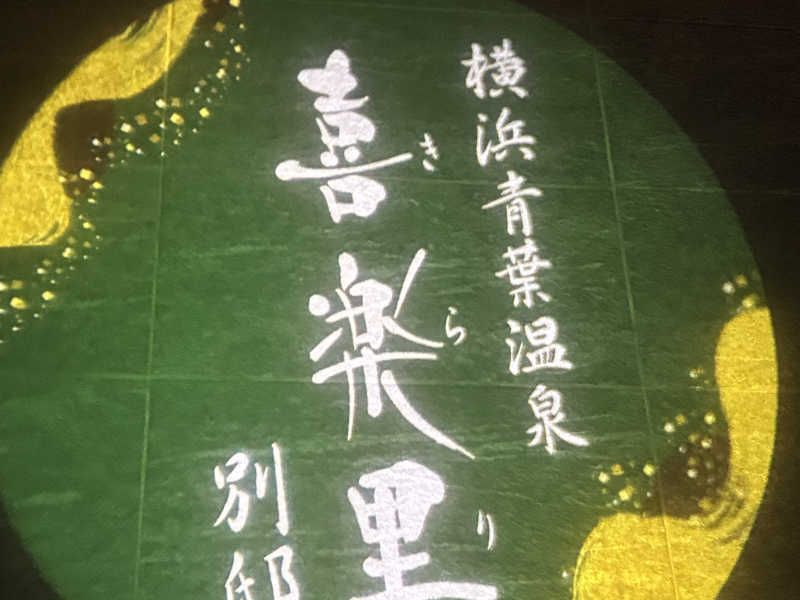 横浜青葉温泉
喜楽里
きらり
別邸